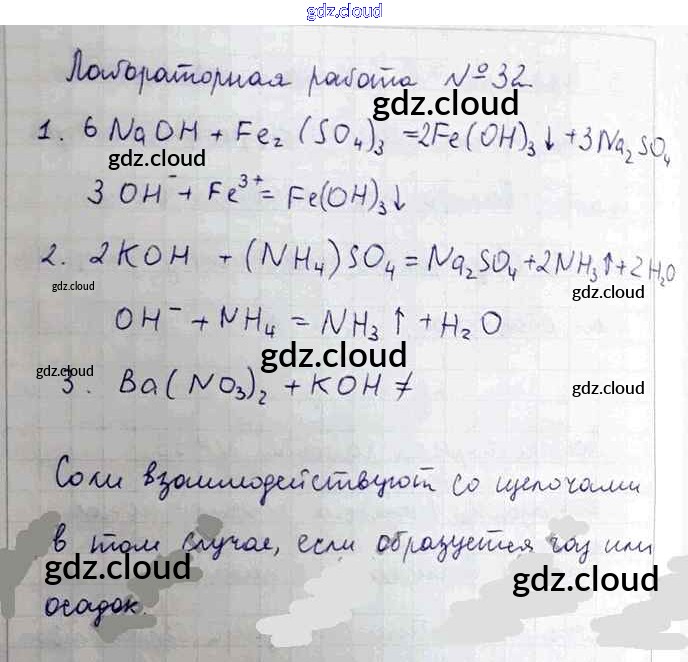 gdz.cloud
Лабораторная работа №32
gdz.cloud
1. 6NaOH + Fe₂(SO₄)₃ =2Fe(OH)₃↓ +3Na₂SO₄
gdz.cloud
3OH⁻ + Fe³⁺ = Fe(OH)₃↓
2. 2KOH + (NH₄)SO₄ = Na₂SO₄ +2NH₃↑ +2H₂O
gdz.cloud gdz.cloud
OH⁻ + NH₄ = NH₃↑ + H₂O
gdz.cloud
gdz.cloud
3. Ba(NO₃)₂ + KOH ≠
gdz.cloud
Соли взаимодействуют со щелочами
в том случае, если образуется газ или
gdz.cloud gdz.cloud
осадок.